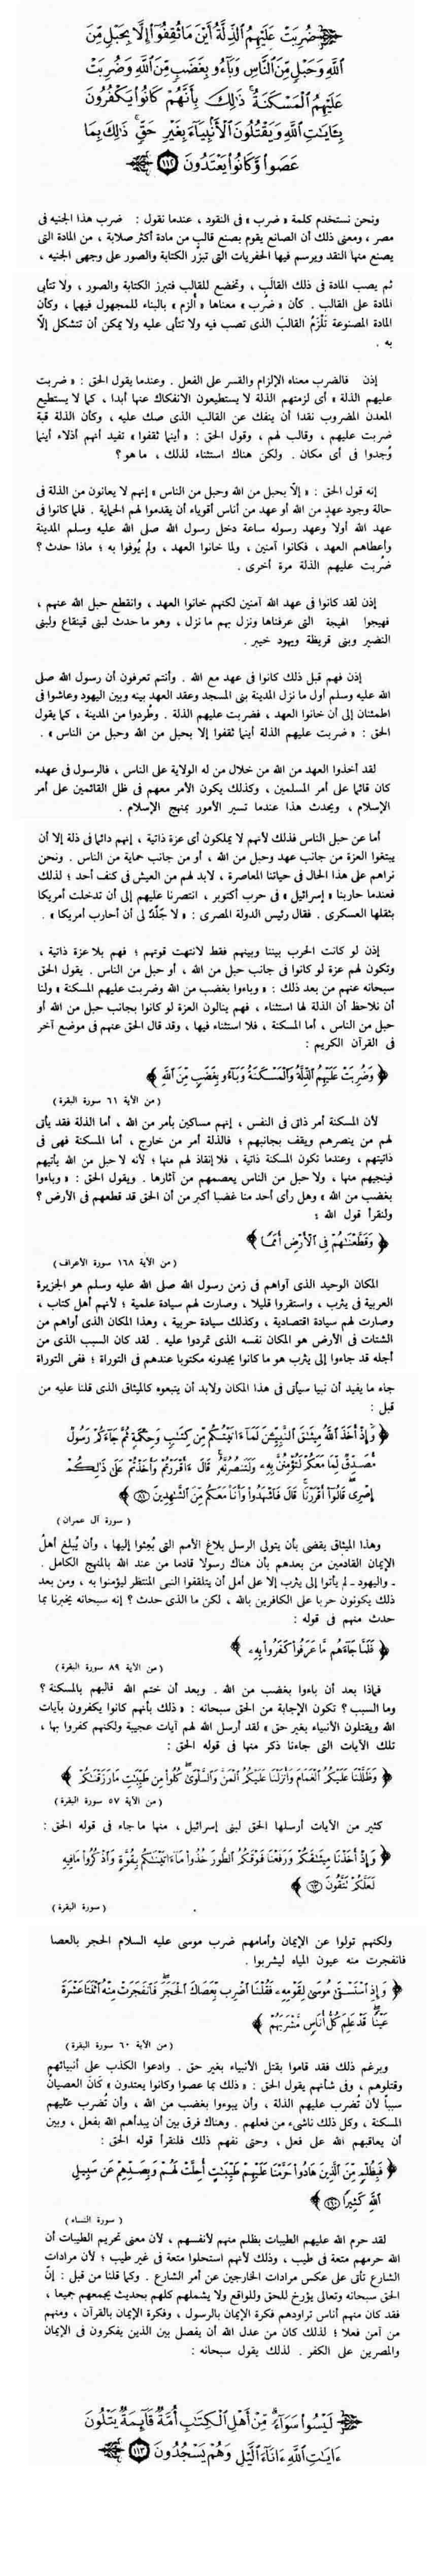 ضُرِبَتْ عَلَيْهِمُ الذِّلَّةُ أَيْنَ مَا ثُقِفُوٓا۟ إِلَّا بِحَبْلٍ مِّنَ
اللَّهِ وَحَبْلٍ مِّنَ النَّاسِ وَبَآءُو بِغَضَبٍ مِّنَ اللَّهِ وَضُرِبَتْ
عَلَيْهِمُ الْمَسْكَنَةُ ذَٰلِكَ بِأَنَّهُمْ كَانُوا۟ يَكْفُرُونَ
بِـَٔايَٰتِ اللَّهِ وَيَقْتُلُونَ الْأَنۢبِيَآءَ بِغَيْرِ حَقٍّ ذَٰلِكَ بِمَا
عَصَوا۟ وَّكَانُوا۟ يَعْتَدُونَ ١١٢
ونحن نستخدم كلمة « ضرب » فى النقود ، عندما نقول : ضرب هذا الجنيه فى
مصر ، ومعنى ذلك أن الصانع يقوم بصنع قالب من مادة أكثر صلابة ، من المادة التى
يصنع منها النقد ويرسم فيها الحفريات التى تبرز الكتابة والصور على وجهى الجنيه ،
ثم يصب المادة فى ذلك القالَب ، وتخضع للقالب فتبرز الكتابة والصور ، ولا تتأبى
المادة على القالب . كأن « ضُرب » معناها « أُلزم » بالبناء للمجهول فيهما ، وكأن
المادة المصنوعة تَلْزَمُ القالبَ الذى تصب فيه ولا تتأبى عليه ولا يمكن أن تتشكل إلاّ
به .
إذن فالضرب معناه الإلزام والقسر على الفعل . وعندما يقول الحق : « ضربت
عليهم الذلة » أى لزمتهم الذلة لا يستطيعون الانفكاك عنها أبدا ، كما لا يستطيع
المعدن المضروب نقدا أن ينفك عن القالب الذى صك عليه ، وكأن الذلة قبة
ضربت عليهم ، وقالب لهم ، وقول الحق : « أينما ثقفوا » تفيد أنهم أذلاء أينما
وُجدوا فى أى مكان . ولكن هناك استثناء لذلك ، ما هو ؟
إنه قول الحق : « إلاّ بحبل من الله وحبل من الناس » إنهم لا يعانون من الذلة فى
حالة وجود عهدٍ من الله أو عهد من أناس أقوياء أن يقدموا لهم الحماية . فلما كانوا فى
عهد الله أولا وعهد رسوله ساعة دخل رسول الله صلى الله عليه وسلم المدينة
وأعطاهم العهد ، فكانوا آمنين ، ولما خانوا العهد ، ولم يُوفوا به ؛ ماذا حدث ؟
ضُربت عليهم الذلة مرة أخرى .
إذن لقد كانوا فى عهد الله آمنين لكنهم خانوا العهد ، وانقطع حبل الله عنهم ،
فهيجوا الهيجة التى عرفناها ونزل بهم ما نزل ، وهو ما حدث لبنى قينقاع ولبنى
النضير وبنى قريظة ويهود خيبر .
إذن فهم قبل ذلك كانوا فى عهد مع الله . وأنتم تعرفون أن رسول الله صلى
الله عليه وسلم أول ما نزل المدينة بنى المسجد وعقد العهد بينه وبين اليهود وعاشوا فى
اطمئنان إلى أن خانوا العهد ، فضربت عليهم الذلة . وطُردوا من المدينة ، كما يقول
الحق : « ضربت عليهم الذلة أينما ثقفوا إلا بحبل من الله وحبل من الناس » .
لقد أخذوا العهد من الله من خلال من له الولاية على الناس ، فالرسول فى عهده
كان قائما على أمر المسلمين ، وكذلك يكون الأمر معهم فى ظل القائمين على أمر
الإسلام ، ويحدث هذا عندما تسير الأمور بمنهج الإسلام .
أما عن حبل الناس فذلك لأنهم لا يملكون أى عزة ذاتية ، إنهم دائما فى ذلة إلا أن
يبتغوا العزة من جانب عهد وحبل من الله ، أو من جانب حماية من الناس . ونحن
نراهم على هذا الحال فى حياتنا المعاصرة ، لابد لهم من العيش فى كنف أحد ؛ لذلك
فعندما حاربنا « إسرائيل » فى حرب أكتوبر ، انتصرنا عليهم إلى أن تدخلت أمريكا
بثقلها العسكرى . فقال رئيس الدولة المصرى : « لا جَلَدَ لى أن أحارب أمريكا » .
إذن لو كانت الحرب بيننا وبينهم فقط لانتهت قوتهم ؛ فهم بلا عزة ذاتية ،
وتكون لهم عزة لو كانوا فى جانب حبل من الله ، أو حبل من الناس . يقول الحق
سبحانه عنهم من بعد ذلك : « وباءوا بغضب من الله وضربت عليهم المسكنة » ولنا
أن نلاحظ أن الذلة لها استثناء ، فهم ينالون العزة لو كانوا بجانب حبل من الله أو
حبل من الناس ، أما المسكنة ، فلا استثناء فيها ، وقد قال الحق عنهم فى موضع آخر
فى القرآن الكريم :
﴿ وَضُرِبَتْ عَلَيْهِمُ الذِّلَّةُ وَالْمَسْكَنَةُ وَبَآءُو بِغَضَبٍ مِّنَ اللَّهِ ﴾
( من الآية ٦١ سورة البقرة )
لأن المسكنة أمر ذاتى فى النفس ، إنهم مساكين بأمر من الله ، أما الذلة فقد يأتى
لهم من ينصرهم ويقف بجانبهم ؛ فالذلة أمر من خارج ، أما المسكنة فهى فى
ذاتيتهم ، وعندما تكون المسكنة ذاتية ، فلا إنقاذ لهم منها ؛ لأنه لا حبل من الله يأتيهم
فينجيهم منها ، ولا حبل من الناس يعصمهم من آثارها . ويقول الحق : « وباءوا
بغضب من الله » وهل رأى أحد منا غضبا أكبر من أن الحق قد قطعهم فى الأرض ؟
ولنقرأ قول الله :
﴿ وَقَطَّعْنَٰهُمْ فِى الْأَرْضِ أُمَمًا ﴾
( من الآية ١٦٨ سورة الأعراف )
المكان الوحيد الذى آواهم فى زمن رسول الله صلى الله عليه وسلم هو الجزيرة
العربية فى يثرب ، واستقروا قليلا ، وصارت لهم سيادة علمية ؛ لأنهم أهل كتاب ،
وصارت لهم سيادة اقتصادية ، وكذلك سيادة حربية ، وهذا المكان الذى أواهم من
الشتات فى الأرض هو المكان نفسه الذى تمردوا عليه . لقد كان السبب الذى من
أجله قد جاءوا إلى يثرب هو ما كانوا يجدونه مكتوبا عندهم فى التوراة ؛ ففى التوراة
جاء ما يفيد أن نبيا سيأتى فى هذا المكان ولابد أن يتبعوه كالميثاق الذى قلنا عليه من
قبل :
﴿ وَإِذْ أَخَذَ اللَّهُ مِيثَٰقَ النَّبِيِّـۧنَ لَمَآ ءَاتَيْتُكُم مِّن كِتَٰبٍ وَحِكْمَةٍ ثُمَّ جَآءَكُمْ رَسُولٌ
مُّصَدِّقٌ لِّمَا مَعَكُمْ لَتُؤْمِنُنَّ بِهِۦ وَلَتَنصُرُنَّهُۥ قَالَ ءَأَقْرَرْتُمْ وَأَخَذْتُمْ عَلَىٰ ذَٰلِكُمْ
إِصْرِى قَالُوٓا۟ أَقْرَرْنَا قَالَ فَاشْهَدُوا۟ وَأَنَا۠ مَعَكُم مِّنَ الشَّٰهِدِينَ ٨١ ﴾
( سورة آل عمران )
وهذا الميثاق يقضى بأن يتولى الرسل بلاغ الأمم التى بُعثوا إليها ، وأن يُبلغ أهلُ
الإيمان القادمين من بعدهم بأن هناك رسولا قادما من عند الله بالمنهج الكامل .
ـ واليهود ـ لم يأتوا إلى يثرب إلا على أمل أن يتلقفوا النبى المنتظر ليؤمنوا به ، ومن بعد
ذلك يكونون حربا على الكافرين بالله ، لكن ما الذى حدث ؟ إنه سبحانه يخبرنا بما
حدث منهم فى قوله :
﴿ فَلَمَّا جَآءَهُم مَّا عَرَفُوا۟ كَفَرُوا۟ بِهِۦ ﴾
( من الآية ٨٩ سورة البقرة )
فماذا بعد أن باءوا بغضب من الله . وبعد أن ختم الله قالبهم بالمسكنة ؟
وما السبب ؟ تكون الإجابة من الحق سبحانه : « ذلك بأنهم كانوا يكفرون بآيات
الله ويقتلون الأنبياء بغير حق » لقد أرسل الله لهم آيات عجيبة ولكنهم كفروا بها ،
تلك الآيات التى جاءنا ذكر منها فى قوله الحق :
﴿ وَظَلَّلْنَا عَلَيْكُمُ الْغَمَامَ وَأَنزَلْنَا عَلَيْكُمُ الْمَنَّ وَالسَّلْوَىٰ كُلُوا۟ مِن طَيِّبَٰتِ مَا رَزَقْنَٰكُمْ ﴾
( من الآية ٥٧ سورة البقرة )
كثير من الآيات أرسلها الحق لبنى إسرائيل ، منها ما جاء فى قوله الحق :
﴿ وَإِذْ أَخَذْنَا مِيثَٰقَكُمْ وَرَفَعْنَا فَوْقَكُمُ الطُّورَ خُذُوا۟ مَآ ءَاتَيْنَٰكُم بِقُوَّةٍ وَاذْكُرُوا۟ مَا فِيهِ
لَعَلَّكُمْ تَتَّقُونَ ٦٣ ﴾
( سورة البقرة )
ولكنهم تولوا عن الإيمان وأمامهم ضرب موسى عليه السلام الحجر بالعصا
فانفجرت منه عيون المياه ليشربوا .
﴿ وَإِذِ اسْتَسْقَىٰ مُوسَىٰ لِقَوْمِهِۦ فَقُلْنَا اضْرِب بِّعَصَاكَ الْحَجَرَ فَانفَجَرَتْ مِنْهُ اثْنَتَا عَشْرَةَ
عَيْنًا قَدْ عَلِمَ كُلُّ أُنَاسٍ مَّشْرَبَهُمْ ﴾
( من الآية ٦٠ سورة البقرة )
وبرغم ذلك فقد قاموا بقتل الأنبياء بغير حق . وادعوا الكذب على أنبيائهم
وقتلوهم ، وفى شأنهم يقول الحق : « ذلك بما عصوا وكانوا يعتدون » كَانَ العصيانُ
سبباً لأن تُضرب عليهم الذلة ، وأن يبوءوا بغضب من الله ، وأن تُضرب عليهم
المسكنة ، وكل ذلك ناشىء من فعلهم . وهناك فرق بين أن يبدأهم الله بفعل ، وبين
أن يعاقبهم الله على فعل ، وحتى نفهم ذلك فلنقرأ قوله الحق :
﴿ فَبِظُلْمٍ مِّنَ الَّذِينَ هَادُوا۟ حَرَّمْنَا عَلَيْهِمْ طَيِّبَٰتٍ أُحِلَّتْ لَهُمْ وَبِصَدِّهِمْ عَن سَبِيلِ
اللَّهِ كَثِيرًا ١٦٠ ﴾
( سورة النساء )
لقد حرم الله عليهم الطيبات بظلم منهم لأنفسهم ، لأن معنى تحريم الطيبات أن
الله حرمهم متعة فى طيب ، وذلك لأنهم استحلوا متعة فى غير طيب ؛ لأن مرادات
الشارع تأتى على عكس مرادات الخارجين عن أمر الشارع . وكما قلنا من قبل : إنّ
الحق سبحانه وتعالى يؤرخ للحق وللواقع ولا يشملهم كلهم بحديث يجمعهم جميعا ،
فقد كان منهم أناس تراودهم فكرة الإيمان بالرسول ، وفكرة الإيمان بالقرآن ، ومنهم
من آمن فعلا ؛ لذلك كان من عدل الله أن يفصل بين الذين يفكرون فى الإيمان
والمصرين على الكفر . لذلك يقول سبحانه :
لَيْسُوا۟ سَوَآءً مِّنْ أَهْلِ الْكِتَٰبِ أُمَّةٌ قَآئِمَةٌ يَتْلُونَ
ءَايَٰتِ اللَّهِ ءَانَآءَ الَّيْلِ وَهُمْ يَسْجُدُونَ ١١٣